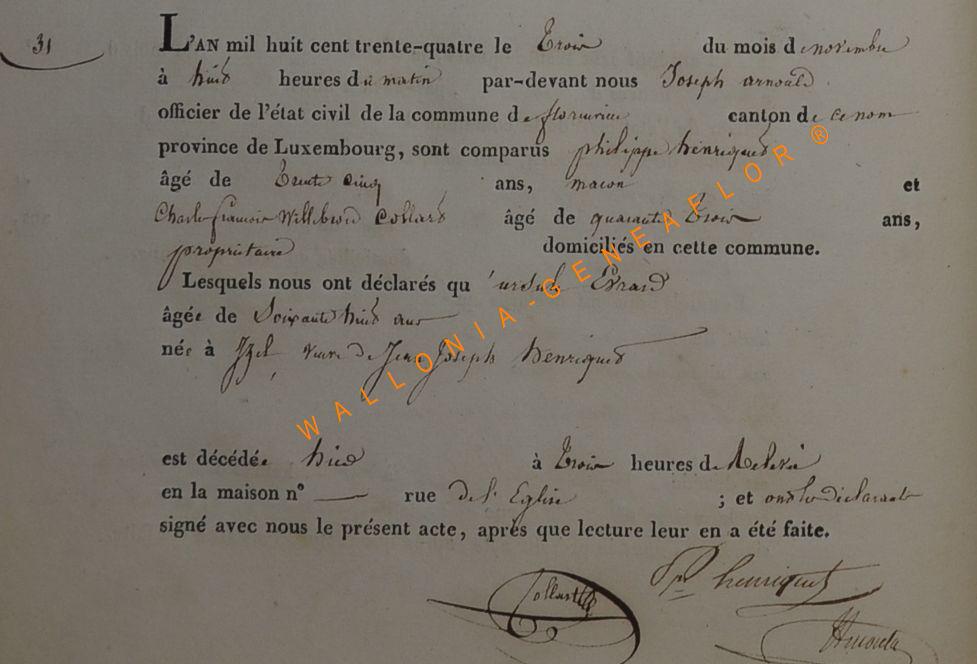 31
L'AN mil huit cent trente-quatre le trois du mois de novembre
à huit heures du matin par-devant nous Joseph arnould
officier de l'état civil de la commune de florenville canton de ce nom
province de Luxembourg, sont comparus philippe henriquet
âgé de trente cinq ans, macon et
Charles françois Willebrord Collard âgé de quarante trois ans,
propriétaire domiciliés en cette commune.
Lesquels nous ont déclarés qu'ursule Evrard
âgée de Soixante huit ans
née à Izel veuve de Jean Joseph henriquet
est décédée hier à trois heures de Relevée
en la maison n° — rue de l'Eglise ; et ont les déclarants
signé avec nous le présent acte, après que lecture leur en a été faite.
Ph henriquet
Collard
WALLONIA-GENEAFLOR ®